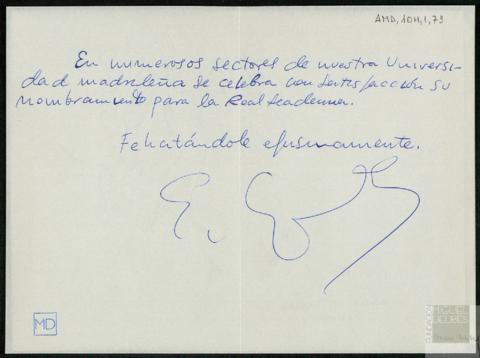 AMD, 104, 1, 73
En numerosos sectores de nuestra Universi-
dad madrileña se celebra con satisfacción su
nombramiento para la Real Academia.
Felicitándole efusivamente.
E.
MD
FUNDACIÓN
MIGUEL
DELIBES